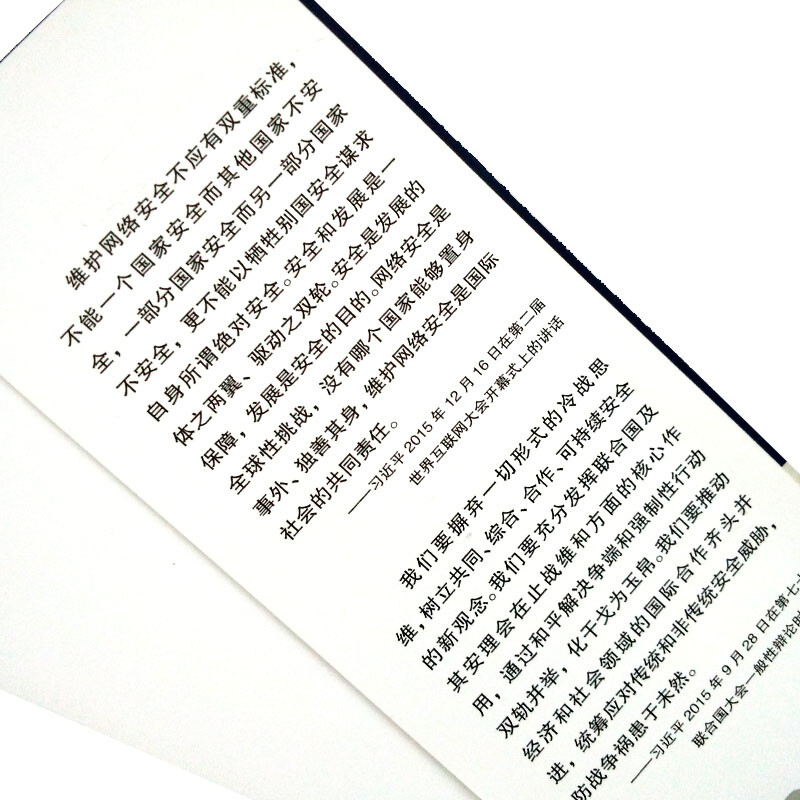 维护网络安全不应有双重标准，
不能一个国家安全而其他国家不安
全，一部分国家安全而另一部分国家
不安全，更不能以牺牲别国安全谋求
自身所谓绝对安全。安全和发展是一
体之两翼、驱动之双轮。安全是发展的
保障，发展是安全的目的。网络安全是
全球性挑战，没有哪个国家能够置身
事外、独善其身，维护网络安全是国际
社会的共同责任。
——习近平 2015 年 12 月 16 日在第二届
世界互联网大会开幕式上的讲话
我们要摒弃一切形式的冷战思
维，树立共同、综合、合作、可持续安全
的新观念。我们要充分发挥联合国及
其安理会在止战维和方面的核心作
用，通过和平解决争端和强制性行动
双轨并举，化干戈为玉帛。我们要推动
经济和社会领域的国际合作齐头并
进，统筹应对传统和非传统安全威胁，
防战争祸患于未然。
——习近平 2015 年 9 月 28 日在第七十
联合国大会一般性辩论时